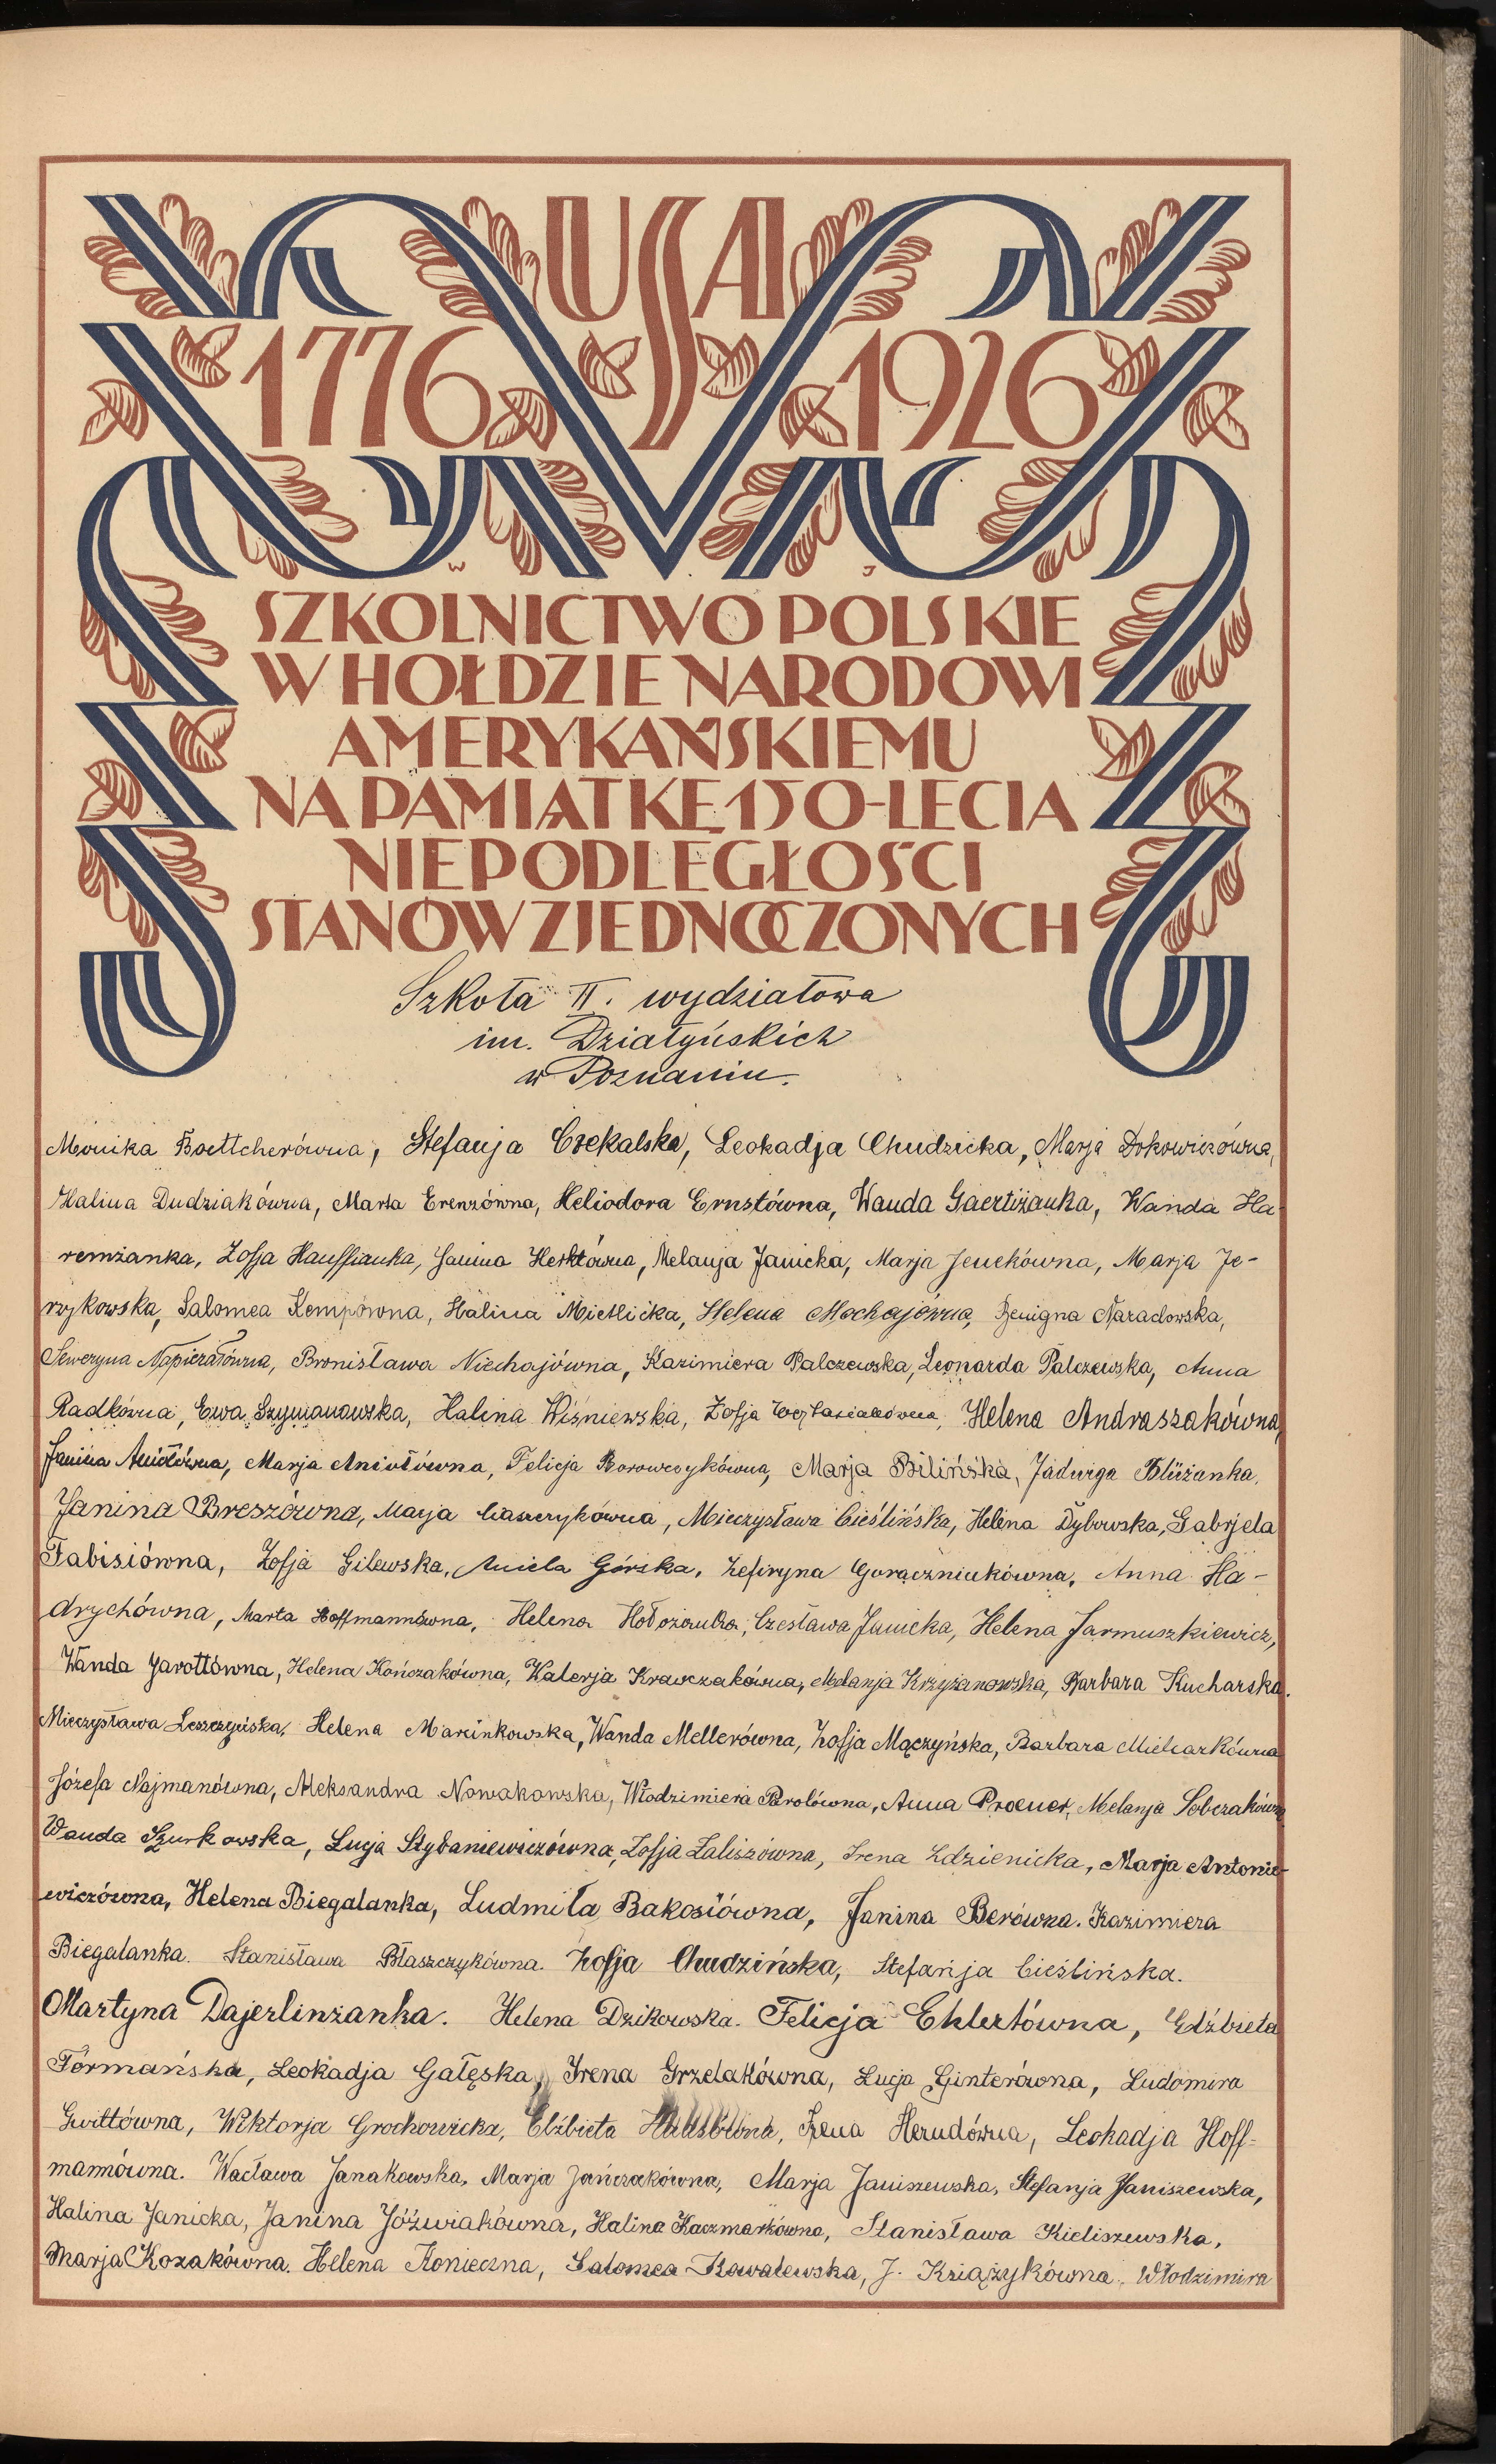 USA
1776 1926
W J
SZKOLNICTWO POLSKIE
W HOŁDZIE NARODOWI
AMERYKAŃSKIEMU
NA PAMIĄTKĘ 150-LECIA
NIEPODLEGŁOŚCI
STANÓW ZJEDNOCZONYCH
Szkoła II. wydziałowa
im. Działyńskich
w Poznaniu.
Monika Boettcherówna, Stefanja Czekalska, Leokadja Chudzicka, Marja Dokowiczówna,
Halina Dudziakówna, Marta Erenzówna, Heliodora Ernstówna, Wanda Gaertiżanka, Wanda Ha-
remżanka, Zofja Hauffianka, Janina Herktówna, Melanja Janicka, Marja Jenchówna, Marja Je-
rzykowska, Salomea Kempówna, Halina Mietlicka, Helena Mochajówna, Benigna Naradowska,
Seweryna Napierałówna, Bronisława Niechajówna, Kazimiera Palczewska, Leonarda Palczewska, Anna
Radkówna, Ewa Szymanowska, Halina Wiśniewska, Zofja Wojtasiakówna, Helena Andraszakówna,
Janina Aniołówna, Marja Aniołówna, Felicja Borowczykówna, Marja Bilińska, Jadwiga Blüżanka,
Janina Breszówna, Marja Ciaszczykówna, Mieczysława Cieślińska, Helena Dybowska, Gabrjela
Fabisiówna, Zofja Gilewska, Aniela Górska, Zefiryna Gorączniakówna, Anna Ha-
drychówna, Marta Hoffmannówna, Helena Hołożanka, Czesława Janicka, Helena Jarmuszkiewicz,
Wanda Jarottówna, Helena Kończakówna, Walerja Krawczakówna, Melanja Krzyżanowska, Barbara Kucharska.
Mieczysława Leszczyńska, Helena Marcinkowska, Wanda Mellerówna, Zofja Mączyńska, Barbara Mielcarkówna
Józefa Najmanówna, Aleksandra Nowakowska, Włodzimiera Parolówna, Anna Proener, Melanja Sobczakówna
Wanda Szurkowska, Łucja Stybaniewiczówna, Zofja Zaliszówna, Irena Zdzienicka, Marja Antonie-
wiczówna, Helena Biegalanka, Ludmiła Bakosiówna, Janina Berówna. Kazimiera
Biegalanka. Stanisława Błaszczykówna. Zofja Chudzińska, Stefanja Cieślińska.
Martyna Dajerlinżanka. Helena Dzikowska. Felicja Ehlertówna, Elżbieta
Formańska, Leokadja Gałęska, Irena Grzelakówna, Łucja Ginterówna, Ludomira
Gwittówna, Wiktorja Grochowicka, Elżbieta Irena Herudówna, Leokadja Hoff-
mannówna. Wacława Janakowska, Marja Jańczakówna, Marja Janiszewska, Stefanja Janiszewska,
Halina Janicka, Janina Jóźwiakówna, Halina Kaczmarkówna, Stanisława Kieliszewska,
Marja Kozakówna. Helena Konieczna, Salomea Kowalewska, J. Książykówna, Włodzimira